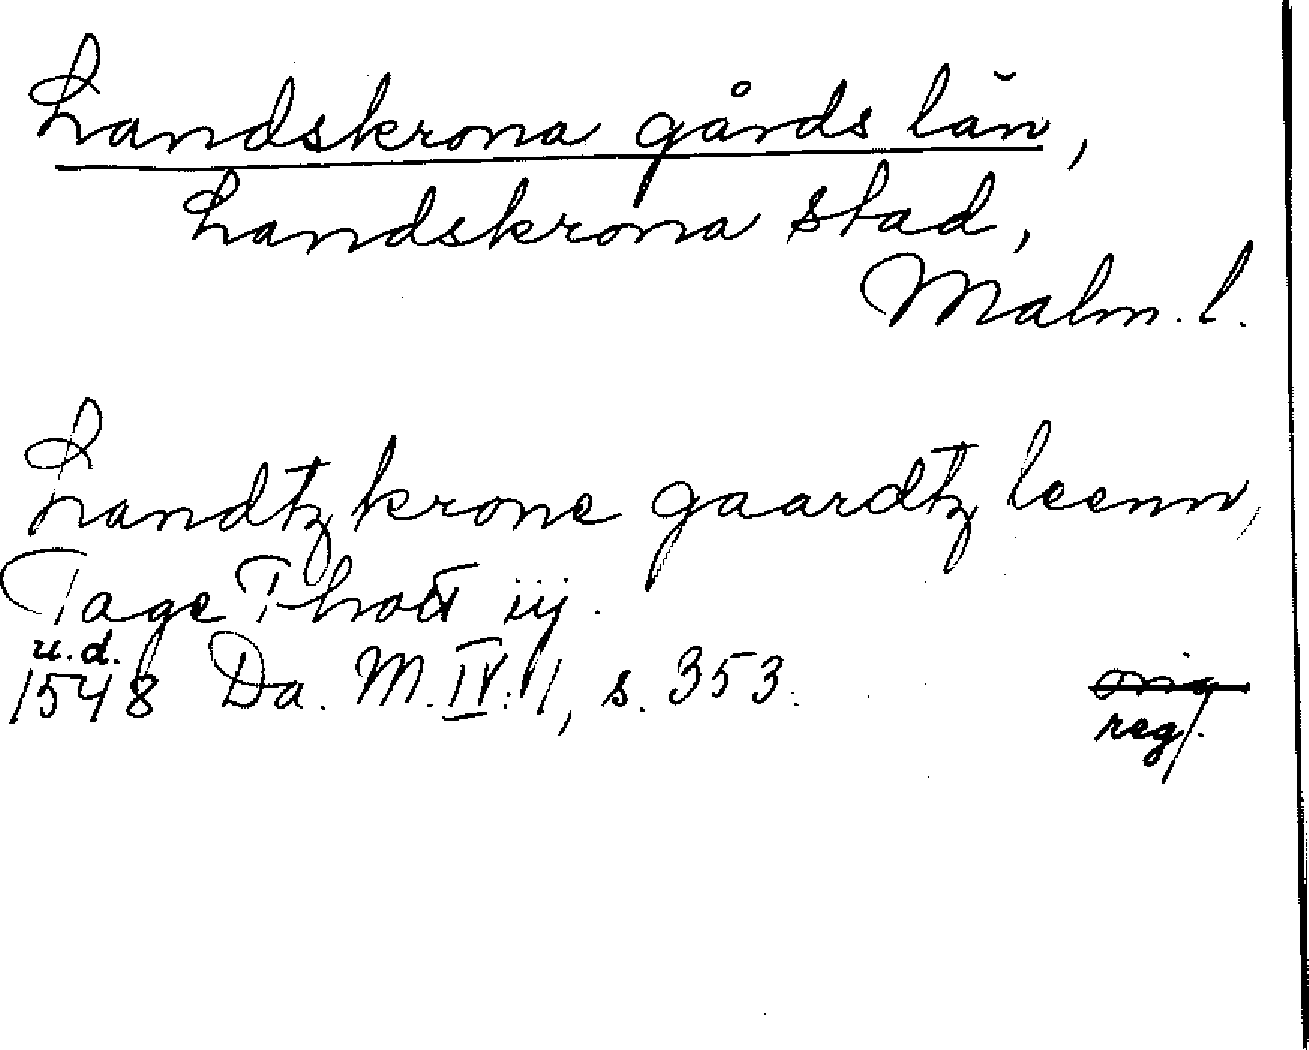 Landskrona gårds län,
Landskrona stad,
Malm. l.
Landtz krone gaardtz leenn,
Tage Thott iij.
u.d.
1548 Da. M. IV:1, s. 353.
orig
reg.